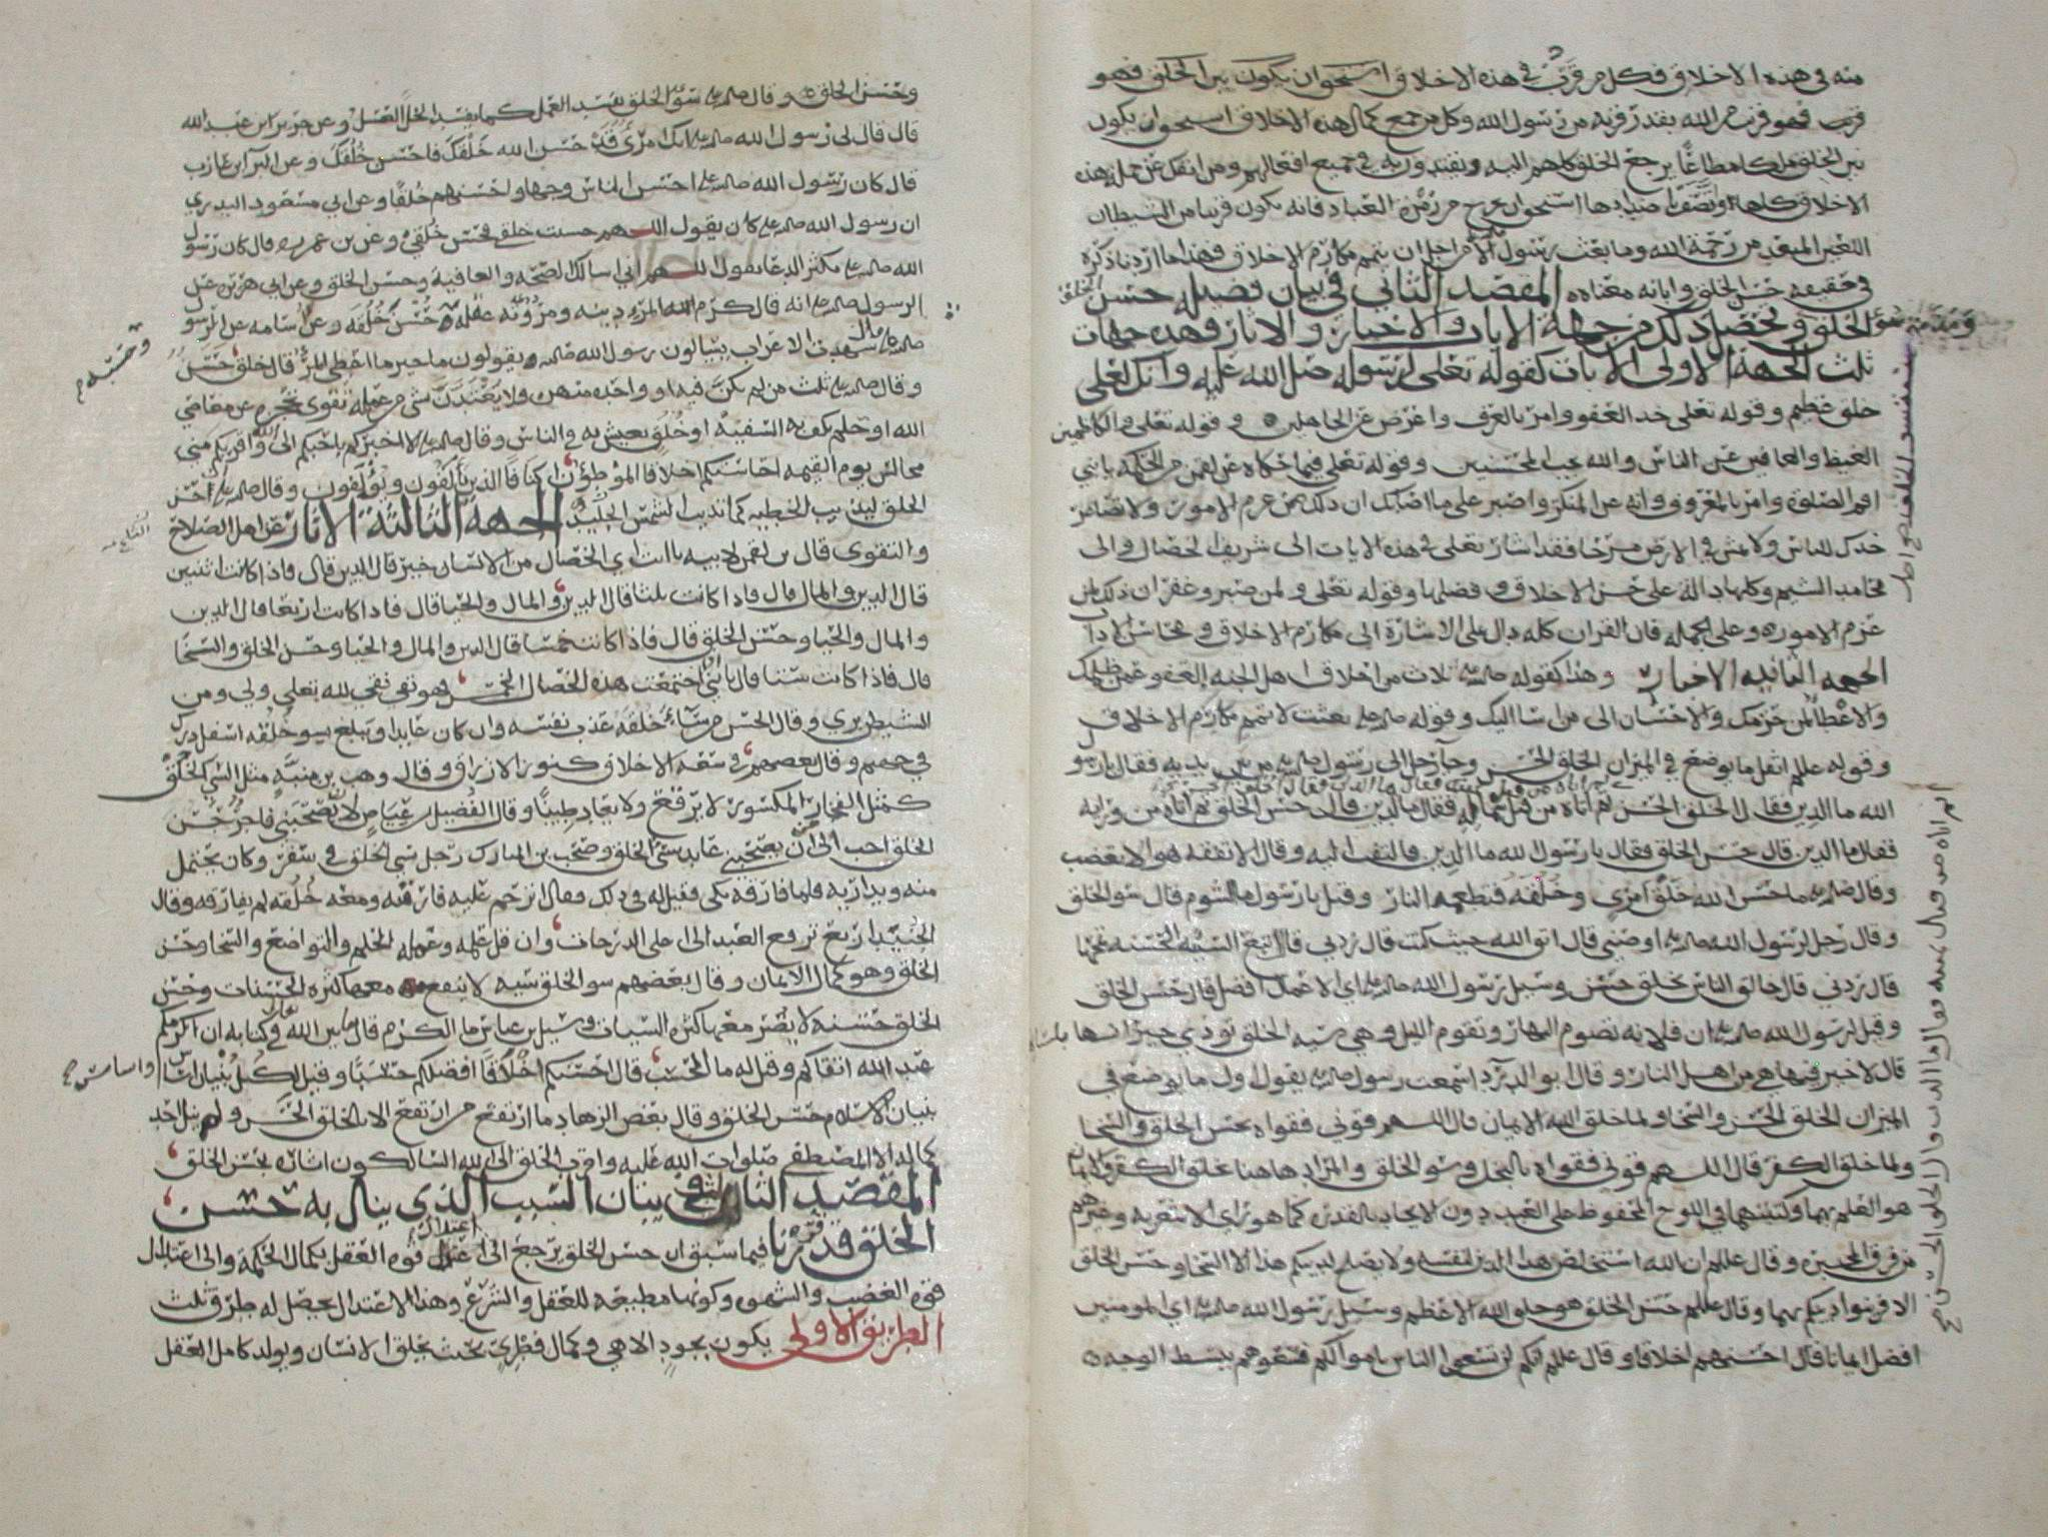 منه في هذه الاخلاق فكل من قرب في هذه الاخلاق استحق ان يكون بين الخلق فهو
قرب فهو قرب من الله بقدر قربه من رسول الله وكل من جمع كمال هذه الاخلاق استحق ان يكون
بين الخلق ملكا مطاعًا يرجع الخلق كلهم اليه ويقتدون به في جميع افعالهم ومن انفك عن جملة هذه
الاخلاق كلها واتصف باضدادها استحق ان يخرج من زمرة العباد فانه يكون قريبا من الشيطان
اللعين المبعد من رحمة الله وما بعث رسول الله الا من اجل ان يتمم مكارم الاخلاق فهذا ما اردنا ذكره
في حقيقة حسن الخلق وابانة معناه ه المقصد الثاني في بيان فضيلة حسن الخلق
الخلق وتحصل ذلك من جهة الايات والاخبار والاثار وهذه جهات
ومذمة سوء
ثلث الجهة الاولى الايات كقوله تعلى لرسوله صلى الله عليه وانك لعلى
خلق عظيم وقوله تعلى خذ العفو وامر بالعرف واعرض عن الجاهلين ه وقوله تعلى والكاظمين
الغيظ والعافين عن الناس والله يحب المحسنين وقوله تعلى فيما حكاه عن لقمن من الحكمة يا بني
اقم الصلوة وامر بالمعروف وانه عن المنكر واصبر على ما اصابك ان ذلك من عزم الامور ولا تصاعر
خدك للناس ولا تمش في الارض مرحا فقد اشار تعلى في هذه الايات الى شريف الخصال والى
محامد الشيم وكلها دالة على حسن الاخلاق وفضلها وقوله تعلى ولمن صبر وغفر ان ذلك لمن
عزم الامور ه وعلى الجملة فان القران كله دال على الاشارة الى مكارم الاخلاق ومحاسن الاداب
الجهة الثانيه الاخبار وهذا كقوله صلى الله عليه ثلاث من اخلاق اهل الجنه العفو عمن ظلمك
والاعطا لمن حرمك والاحسان الى من اسا اليك وقوله صلى الله عليه بعثت لاتمم مكارم الاخلاق
وقوله عللم اثقل ما يوضع في الميزان الخلق الحسن وجا رجل الى رسول الله من بين يديه فقال يا رسو
الله ما الدين فقال الخلق الحسن ثم اتاه من قبل شماله فقال ما الدين قال حسن الخلق ثم اتاه من ورايه
فقال ما الدين قال حسن الخلق فقال يا رسول الله ما الدين فالتفت اليه وقال الا تفقه هو الا تغضب
وقال صلى الله عليه ما حسن الله خلق امرئ وخلقه فتطعمه النار وقيل يا رسول ما الشوم قال سو الخلق
وقال رجل لرسول الله صلى الله عليه اوصني قال اتق الله حيث كنت قال زدني قال اتبع السيئه الحسنة تمحها
قال زدني قال خالق الناس بخلق حسن وسيل رسول الله صلى الله عليه اي الاعمال افضل قال حسن الخلق
وقيل لرسول الله صلى الله عليه ان فلانة تصوم النهار وتقوم الليل وهي سيه الخلق توذي جيرانها بلسانها
قال لا خير فيها هي من اهل النار وقال ابو الدردا سمعت رسول الله يقول اول ما يوضع في
الميزان الخلق الحسن والسخا ولما خلق الله الايمان قال اللهم قوني فقواه بحسن الخلق والسخا
ولما خلق الكفر قال اللهم قوني فقواه بالبخل وسو الخلق والمراد هاهنا بخلق الكفر والايمان
هو العلم بهما وكتبهما في اللوح المحفوظ على الغيب دون الايجاد بالقدرة كما هو راي الاشعريه وغيرهم
من فرق المجبره وقال عللم ان الله استخلص هذا الدين لنفسه ولا يصلح لدينكم هذا الا السخا وحسن الخلق
الا فزينوا دينكم بهما وقال عللم حسن الخلق هو خلق الله الاعظم وسيل رسول الله صلى الله عليه اي المومنين
افضل ايمانا قال احسنهم اخلاقا وقال عللم انكم لن تسعوا الناس باموالكم فتسعوهم ببسط الوجه ه
وحسن الخلق ه وقال صلى الله عليه سو الخلق يفسد العمل كما يفسد الخل العسل وعن جرير ابن عبد الله
قال قال لي رسول الله صلى الله عليه انك امرؤ قد حسن الله خلقك فاحسن خلقك وعن البرا ابن عازب
قال كان رسول الله صلى الله عليه احسن الناس وجها واحسنهم خلقا وعن ابي مسعود البدري
ان رسول الله صلى الله عليه كان يقول اللهم حسنت خلقي فحسن خلقي وعن بن عمر ه قال كان رسول
الله صلى الله عليه يكثر الدعا يقول اللهم اني اسالك الصحة والعافية وحسن الخلق وعن ابي هريرة عن
الرسول صلى الله عليه انه قال كرم الله المرء دينه ومروته عقله وحسن خلقه وعن اسامه عن الرسول
صلى الله عليه قال شهدت الاعراب يسالون رسول الله صلى الله عليه ويقولون ما خير ما اعطي المرء قال خلق حسن
وقال صلى الله عليه ثلث من لم يكن فيه او واحدة منهن ولا يعتدن شي من عمله تقوى تحجزه عن معاصي
الله او حلم يكف به السفيه او خلق يعيش به في الناس وقال صلى الله عليه الا اخبركم باحبكم الى الله واقربكم مني
مجالس يوم القيمه احاسنكم اخلاقا الموطؤن اكنافا الذين يالفون ويؤلفون وقال صلى الله عليه ان حسن
الخلق ليذيب الخطيه كما تذيب الشمس الجليد الجهة الثالثة الاثار عن اهل الصلاح
والتقوى قال بن لقمن لابيه يا ابت اي الخصال من الانسان خير قال الدين قال فاذا كانت اثنتين
قال الدين والمال قال فاذا كانت ثلثا قال الدين والمال والحيا قال فاذا كانت اربعا قال الدين
والمال والحيا وحسن الخلق قال فاذا كانت خمسا قال الدين والمال والحيا وحسن الخلق والسخا
قال فاذا كانت ستا قال يا بني اذا اجتمعت هذه الخصال الخمس فهو تقي نقي لله تعلى ولي ومن
الشيطن بري وقال الحسن من ساء خلقه عذب نفسه وان كان عابدا ويبلغ بسو خلقه اسفل درك
في جهنم وقال بعضهم في سعة الاخلاق كنوز الارزاق وقال وهب بن منبه مثل السي الخلق
كمثل الفخار المكسور لا يرقع ولا يعاد طينا وقال الفضيل بن عياض لان يصحبني فاجر حسن
الخلق احب الي من ان يصحبني عابد سئ الخلق وصحب بن المبارك رجل سي الخلق في سفر وكان يحتمل
منه ويداريه فلما فارقه بكى فقيل له في ذلك فقال اترحم عليه فارقته ومعه خلقه لم يفارقه وقال
الجنيد اربع ترفع العبد الى اعلى الدرجات وان قل علمه وعمله الحلم والتواضع والسخا وحسن
الخلق وهو كمال الايمان وقال بعضهم سو الخلق سيه لا ينفع معها كثرة الحسنات وحسن
الخلق حسنة لا يضر معها كثرة السيات وسيل بن عباس ما الكرم قال ما بين الله في كتابه ان اكرمكم
عند الله اتقاكم وقيل له ما الحسب قال احسنكم اخلاقا افضلكم حسبا وقيل لكل بنيان اساس
بنيان الاسلام حسن الخلق وقال بعض الزهاد ما ارتفع من ارتفع الا بالخلق الحسن ولم ينل احد
كماله الا المصطفى صلوات الله عليه واقرب الخلق الى الله السالكون اثاره بحسن الخلق
المقصد الثالث في بيان السبب الذي ينال به حسن
الخلق قد قررنا فيما سبق ان حسن الخلق يرجع الى اعتدال قوة العقل بكمال الحكمة والى اعتدال
قوى الغضب والشهوه وكونها مطيعة للعقل والشرع وهذا الاعتدال يحصل له طرق ثلث
الطريق الاولى يكون بجود الاهي وكمال فطري بحيث يخلق الانسان ويولد كامل العقل